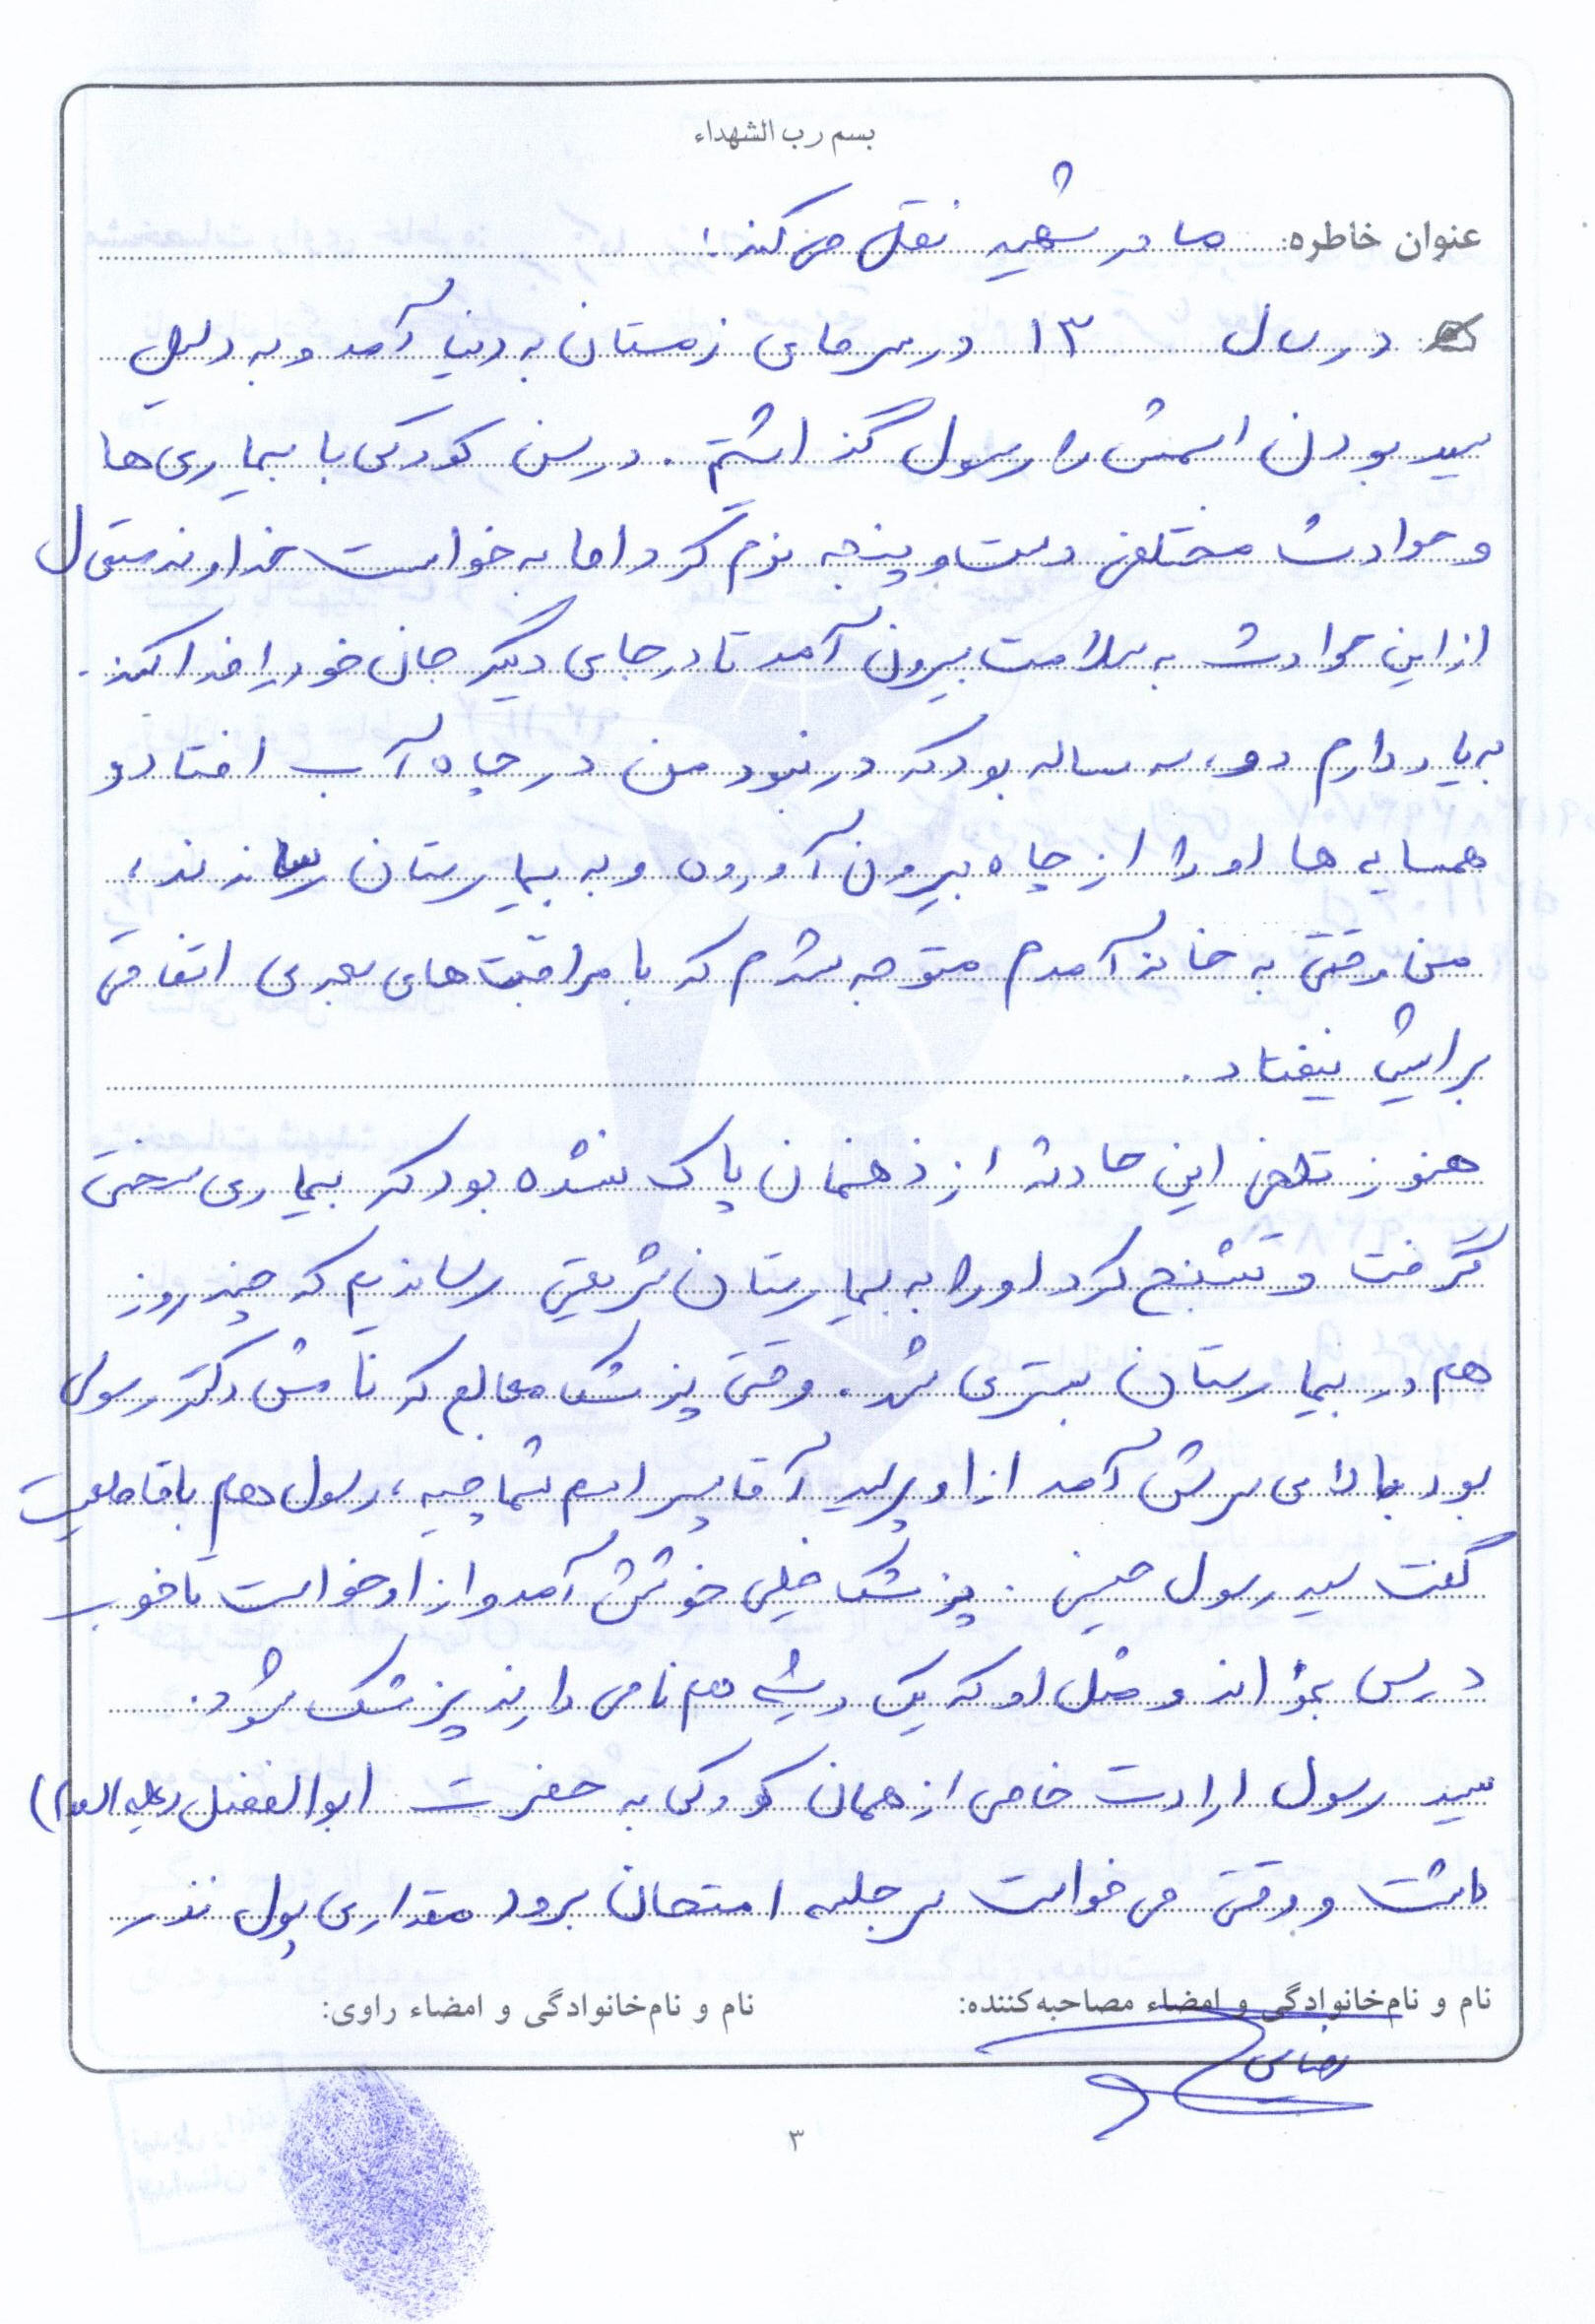 بسم رب الشهداء
عنوان خاطره: مادر شهید نقل می‌کند:
در سال ۱۳ در سرمای زمستان به دنیا آمد و به دلیل
سید بودن اسمش را رسول گذاشتم. در سن کودکی با بیماری‌ها
و حوادث مختلفی دست و پنجه نرم کرد اما به خواست خداوند متعال
از این حوادث به سلامت بیرون آمد تا در جای دیگر جان خود را فدا کند.
به یاد دارم دو، سه ساله بود که در نبود من در چاه آب افتاد و
همسایه‌ها او را از چاه بیرون آوردن و به بیمارستان رساندند،
من وقتی به خانه آمدم متوجه شدم که با مراقبت‌های بعدی اتفاقی
برایش نیفتاد.
هنوز تلخی این حادثه از ذهنمان پاک نشده بود که بیماری سختی
گرفت و تشنج کرد او را به بیمارستان شریعتی رساندیم که چند روز
هم در بیمارستان بستری شد. وقتی پزشک معالج که نامش دکتر رسولی
بود بالای سرش آمد از او پرسید آقا پسر اسم شما چیه، رسول هم با قاطعیت
گفت سید رسول حسینی. پزشک خیلی خوشش آمد و از او خواست تا خوب
درس بخواند و مثل او که یک ریشه هم نامی دارند پزشک شود.
سید رسول ارادت خاصی از همان کودکی به حضرت ابوالفضل (علیه السلام)
داشت و وقتی می‌خواست سر جلسه امتحان برود مقداری پول نذر
نام و نام‌خانوادگی و امضاء مصاحبه‌کننده:
نام و نام‌خانوادگی و امضاء راوی:
۳